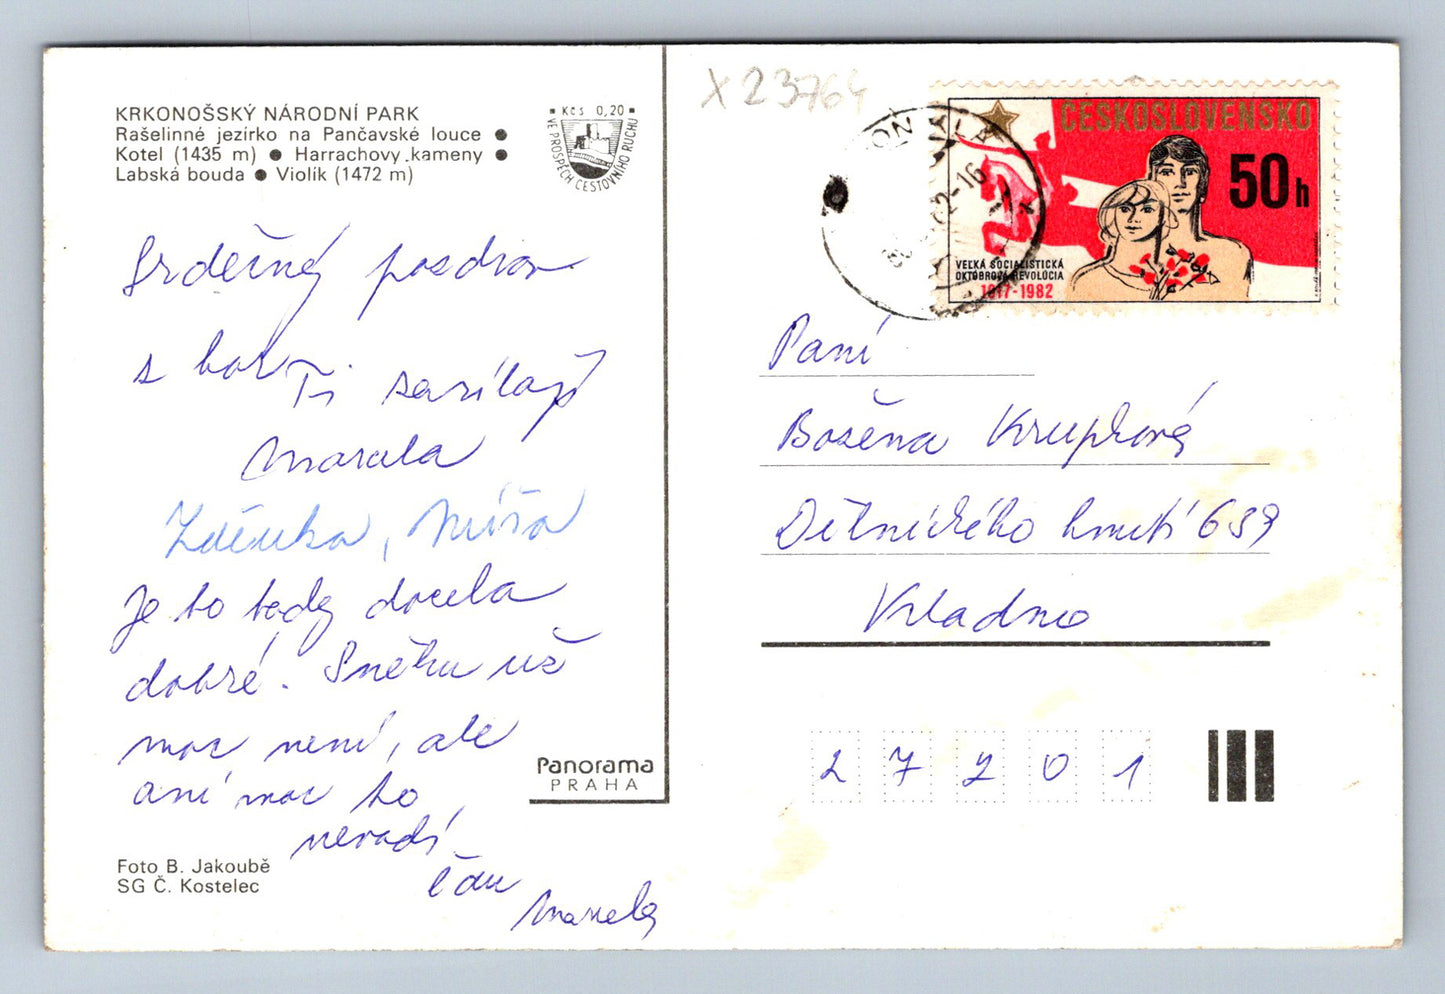 KRKONOŠSKÝ NÁRODNÍ PARK
Rašelinné jezírko na Pančavské louce ●
Kotel (1435 m) ● Harrachovy kameny ●
Labská bouda ● Violík (1472 m)
Kčs 0,20
VE PROSPĚCH CESTOVNÍHO RUCHU
Srdečný pozdrav
s hor Ti zasílají
Marcela
Zdeňka, Míša
Je to tady docela
dobré. Sněhu už
moc není, ale
ani moc to
nevadí.
Čau
Marcela
Panorama
PRAHA
Foto B. Jakoubě
SG Č. Kostelec
X23764
ČESKOSLOVENSKO
50h
VEĽKÁ SOCIALISTICKÁ
OKTÓBROVÁ REVOLÚCIA
1917-1982
Paní
Božena Krupková
Dělnického hnutí 639
Kladno
27201